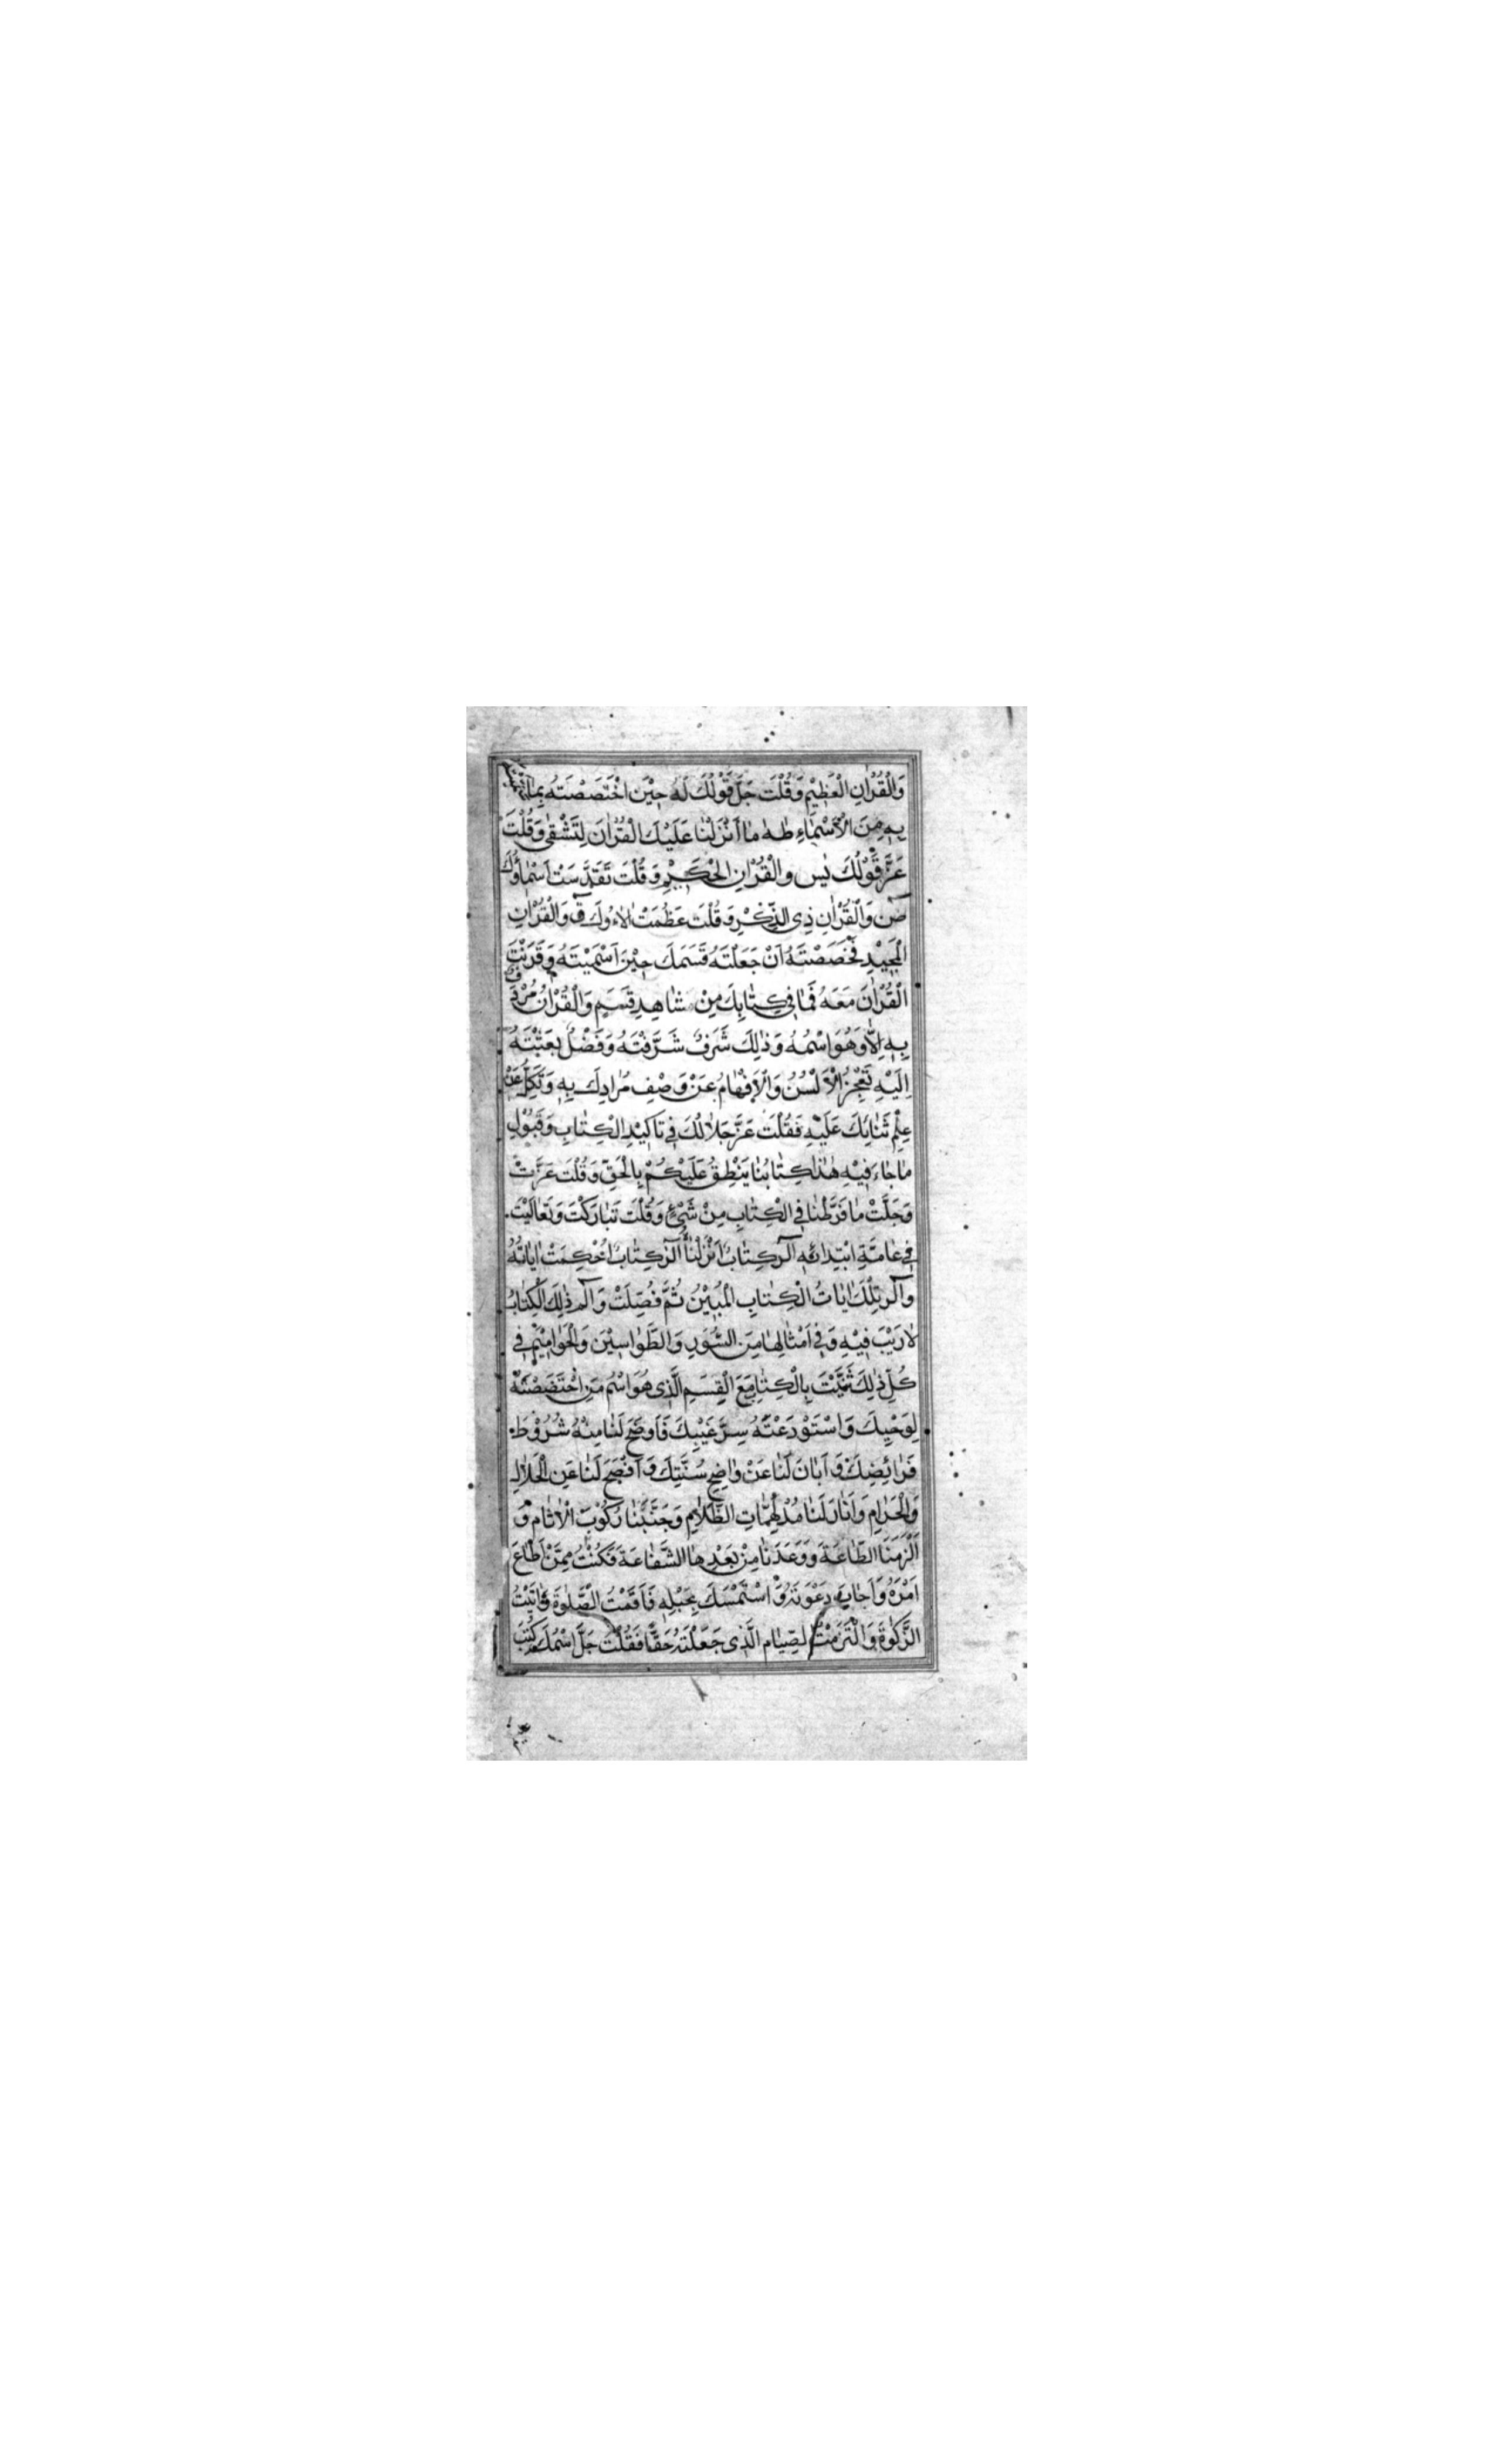 وَالْقُرْاٰنِ الْعَظِيْمِ وَقُلْتَ جَلَّ قَوْلُكَ لَهُ حِيْنَ اخْتَصَصْتَهُ بِمَا
بِهٖ مِنَ الْاَسْمٰاءِ طٰهٰ مٰا اَنْزَلْنٰا عَلَيْكَ الْقُرْاٰنَ لِتَشْقٰى وَقُلْتَ
عَزَّ قَوْلُكَ يٰس وَالْقُرْاٰنِ الْحَكِيْمِ وَقُلْتَ تَقَدَّسَتْ اَسْمٰاؤُكَ
صٓ وَالْقُرْاٰنِ ذِى الذِّكْرِ وَقُلْتَ عَظُمَتْ اٰلاٰءُكَ قٓ وَالْقُرْاٰنِ
الْمَجِيْدِ فَخَصَصْتَهُ اَنْ جَعَلْتَهُ قَسَمَكَ حِيْنَ اَسْمَيْتَهُ وَقَرَنْتَ
الْقُرْاٰنَ مَعَهُ فَمٰا فِى كِتٰابِكَ مِنْ شٰاهِدِ قَسَمٍ وَالْقُرْاٰنُ مُرْدَفٌ
بِهٖ اِلاّٰ وَهُوَ اسْمُهُ وَذٰلِكَ شَرَفٌ شَرَّفْتَهُ وَفَضْلٌ بَعَثْتَهُ
اِلَيْهِ تَعْجِزُ الْاَلْسُنُ وَالْاَفْهٰامُ عَنْ وَصْفِ مُرٰادِكَ بِهٖ وَتَكِلُّ عَنْ
عِلْمِ ثَنٰائِكَ عَلَيْهِ فَقُلْتَ عَزَّ جَلاٰلُكَ فِى تٰاكِيْدِ الْكِتٰابِ وَقَبُوْلِ
مٰا جٰاءَ فِيْهِ هٰذٰا كِتٰابُنٰا يَنْطِقُ عَلَيْكُمْ بِالْحَقِّ وَقُلْتَ عَزَّتْ
وَجَلَّتْ مٰا فَرَّطْنٰا فِى الْكِتٰابِ مِنْ شَىْءٍ وَقُلْتَ تَبٰارَكْتَ وَتَعٰالَيْتَ
فِى عٰامَّةِ ابْتِدٰائِهٖ الٓرٰ كِتٰابٌ اَنْزَلْنٰا الٓرٰ كِتٰابٌ اُحْكِمَتْ اٰيٰاتُهُ
وَالٓرٰ تِلْكَ اٰيٰاتُ الْكِتٰابِ الْمُبِيْنُ ثُمَّ فُصِّلَتْ وَالٓمٓ ذٰلِكَ الْكِتٰابُ
لاٰرَيْبَ فِيْهِ وَفِى اَمْثٰالِهٰا مِنَ السُّوَرِ وَالطَّوٰاسِيْنَ وَالْحَوٰامِيْمَ فِى
كُلِّ ذٰلِكَ ثَنَّيْتَ بِالْكِتٰابِ مَعَ الْقَسَمِ الَّذِى هُوَ اسْمُ مَنِ اخْتَصَصْتَهُ
لِوَحْيِكَ وَاسْتَوْدَعْتَهُ سِرَّ غَيْبِكَ فَاَوْضَحَ لَنٰا مِنْهُ شُرُوْطَ
فَرٰائِضِكَ وَاَبٰانَ لَنٰا عَنْ وٰاضِحِ سُنَّتِكَ وَاَفْصَحَ لَنٰا عَنِ الْحَلاٰلِ
وَالْحَرٰامِ وَاَنٰارَ لَنٰا مُدْلَهِمّٰاتِ الظَّلاٰمِ وَجَنَّبَنٰا رُكُوْبَ الْاٰثٰامِ وَ
اَلْزَمَنَا الطّٰاعَةَ وَوَعَدَنٰا مِنْ بَعْدِهٰا الشَّفٰاعَةَ فَكُنْتُ مِمَّنْ اَطٰاعَ
اَمْرَهُ وَاَجٰابَ دَعْوَتَهُ وَاسْتَمْسَكَ بِحَبْلِهٖ فَاَقَمْتُ الصَّلٰوةَ وَاٰتَيْتُ
الزَّكٰوةَ وَالْتَزَمْتُ الصِّيٰامَ الَّذِى جَعَلْتَهُ حَقًّا فَقُلْتَ جَلَّ اسْمُكَ كُتِبَ